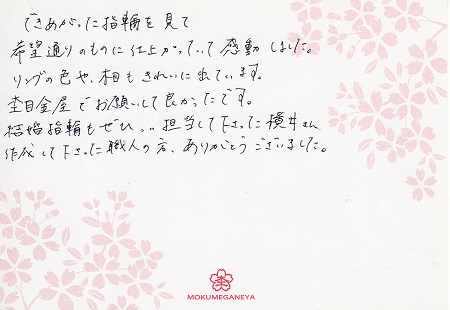 できあがった指輪を見て
希望通りのものに仕上がっていて感動しました。
リングの色や、木目もきれいに出ています。
杢目金屋でお願いして良かったです。
結婚指輪もぜひ… 担当して下さった横井さん
作成して下さった職人の方、ありがとうございました。
MOKUMEGANEYA